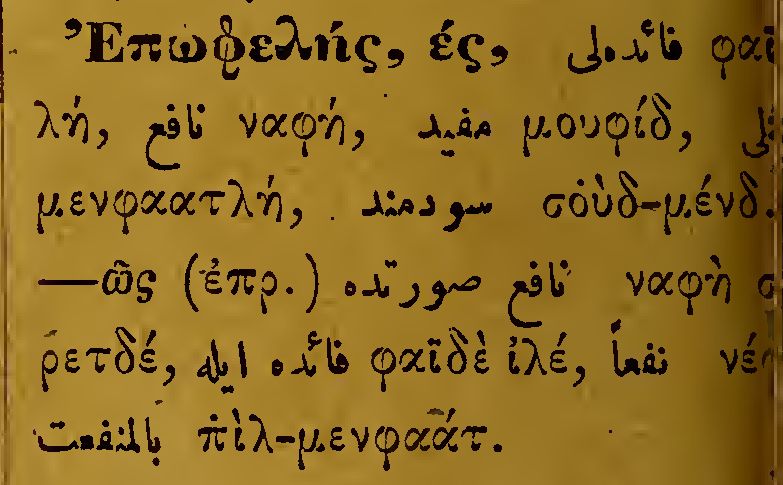 Ἐπωφελής, ές, فائدەلی φαϊ
λή, نافع ναφή, مفيد μουφίδ,
μενφαατλή, سودمند σοὺδ-μένδ.
—ῶς (ἐπρ.) نافع صورتده ναφὴ σ
ρετδέ, فائده ايله φαϊδὲ ἰλέ, نفعاً νέ
بالمنفعت π̇ὶλ-μενφαάτ.